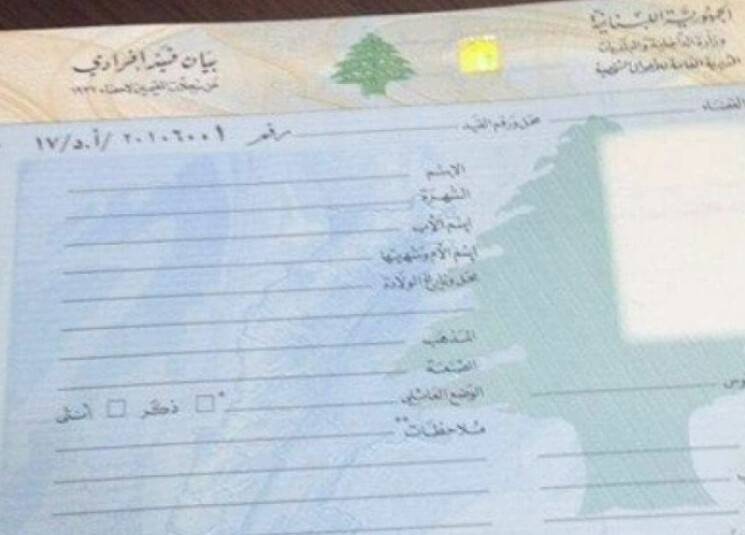 الجمهورية اللبنانية
وزارة الداخلية والبلديات
المديرية العامة للأحوال الشخصية
بيان قيد إفرادي
عن سجلات المقيمين لإحصاء ١٩٣٢
القضاء
محل ورقم القيد
رقم ٢٠١٠٦٠٠١ /أ.د/ ١٧
الإسم
الشهرة
إسم الأب
إسم الأم وشهرتها
محل وتاريخ الولادة
المذهب
الصنعة
الوضع العائلي * ذكر أنثى
ملاحظات**